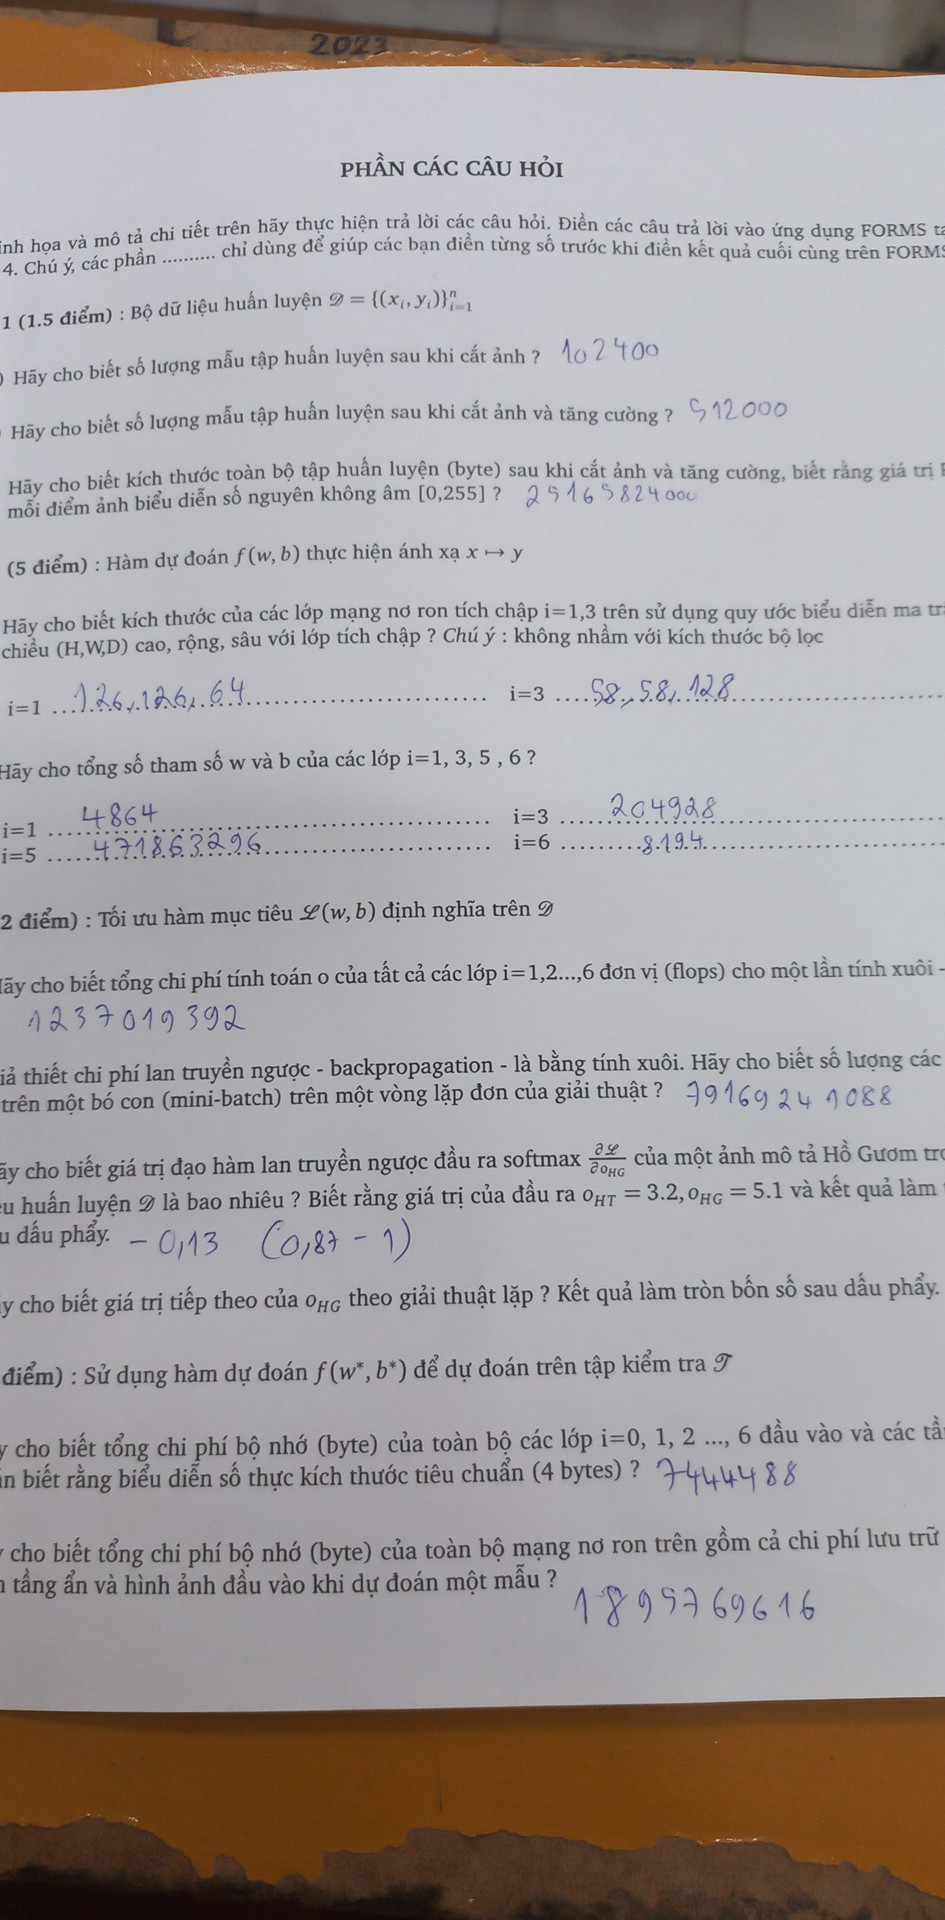 2023
PHẦN CÁC CÂU HỎI
inh họa và mô tả chi tiết trên hãy thực hiện trả lời các câu hỏi. Điền các câu trả lời vào ứng dụng FORMS tạ
4. Chú ý, các phần .......... chỉ dùng để giúp các bạn điền từng số trước khi điền kết quả cuối cùng trên FORMS
1 (1.5 điểm) : Bộ dữ liệu huấn luyện 𝒟 = {(xᵢ, yᵢ)}ⁿᵢ₌₁
) Hãy cho biết số lượng mẫu tập huấn luyện sau khi cắt ảnh ? 102400
Hãy cho biết số lượng mẫu tập huấn luyện sau khi cắt ảnh và tăng cường ? 512000
Hãy cho biết kích thước toàn bộ tập huấn luyện (byte) sau khi cắt ảnh và tăng cường, biết rằng giá trị
mỗi điểm ảnh biểu diễn số nguyên không âm [0,255] ? 25165824000
(5 điểm) : Hàm dự đoán f(w, b) thực hiện ánh xạ x ↦ y
Hãy cho biết kích thước của các lớp mạng nơ ron tích chập i=1,3 trên sử dụng quy ước biểu diễn ma tr
chiều (H,W,D) cao, rộng, sâu với lớp tích chập ? Chú ý : không nhầm với kích thước bộ lọc
i=1 ...126, 126, 64............ i=3 ....58, 58, 128............
Hãy cho tổng số tham số w và b của các lớp i=1, 3, 5 , 6 ?
i=1 ....4864............ i=3 ......204928............
i=5 .....471863296............ i=6 .........8194............
2 điểm) : Tối ưu hàm mục tiêu ℒ(w, b) định nghĩa trên 𝒟
Hãy cho biết tổng chi phí tính toán o của tất cả các lớp i=1,2...,6 đơn vị (flops) cho một lần tính xuôi -
1237019392
iả thiết chi phí lan truyền ngược - backpropagation - là bằng tính xuôi. Hãy cho biết số lượng các
trên một bó con (mini-batch) trên một vòng lặp đơn của giải thuật ? 79169241088
ãy cho biết giá trị đạo hàm lan truyền ngược đầu ra softmax ∂ℒ/∂o_HG của một ảnh mô tả Hồ Gươm tro
ệu huấn luyện 𝒟 là bao nhiêu ? Biết rằng giá trị của đầu ra o_HT = 3.2, o_HG = 5.1 và kết quả làm
u dấu phẩy. - 0,13 (0,87 - 1)
y cho biết giá trị tiếp theo của o_HG theo giải thuật lặp ? Kết quả làm tròn bốn số sau dấu phẩy.
điểm) : Sử dụng hàm dự đoán f(w*, b*) để dự đoán trên tập kiểm tra 𝒯
y cho biết tổng chi phí bộ nhớ (byte) của toàn bộ các lớp i=0, 1, 2 ..., 6 đầu vào và các tầ
ẩn biết rằng biểu diễn số thực kích thước tiêu chuẩn (4 bytes) ? 7444488
y cho biết tổng chi phí bộ nhớ (byte) của toàn bộ mạng nơ ron trên gồm cả chi phí lưu trữ
n tầng ẩn và hình ảnh đầu vào khi dự đoán một mẫu ?
1895769616